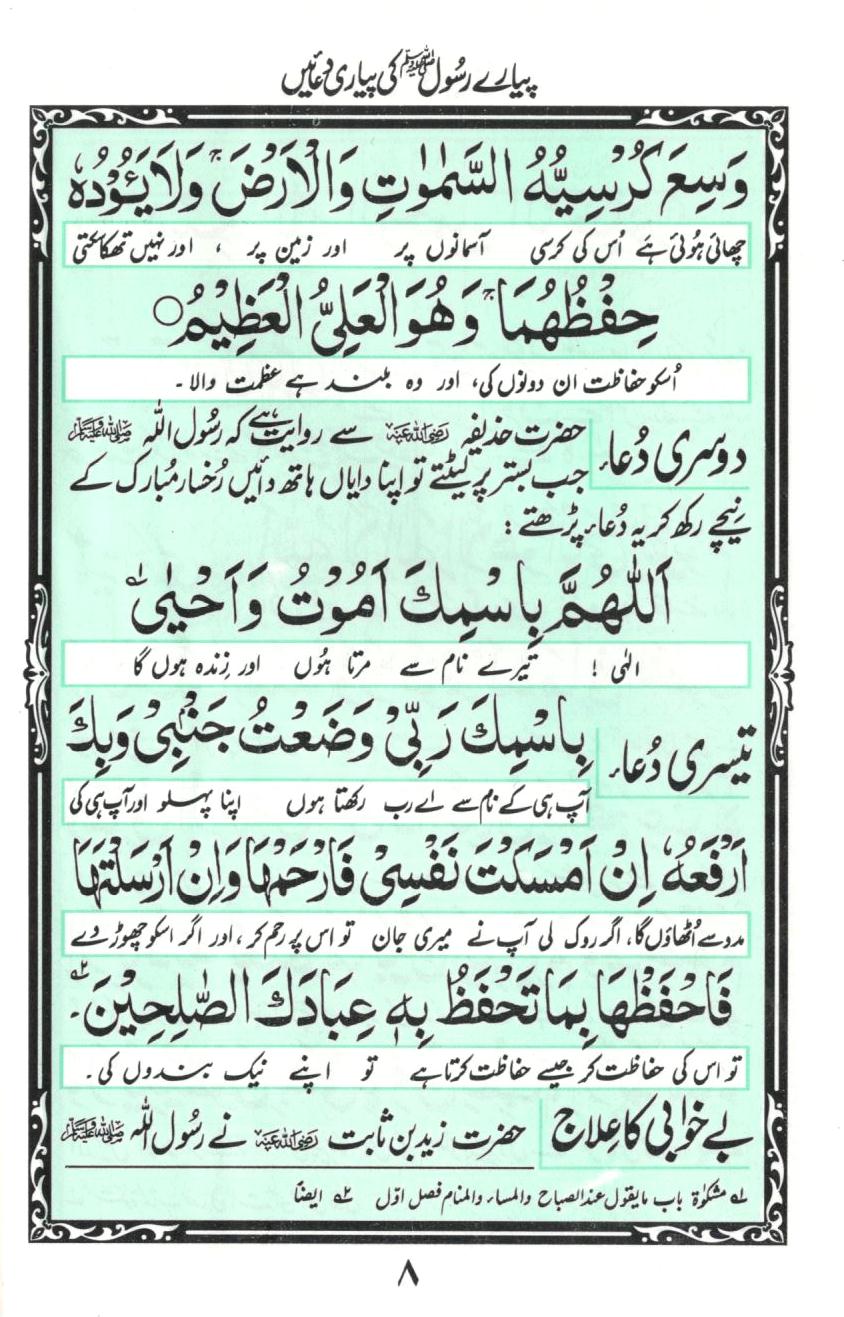 پیارے رسُول ﷺ کی پیاری دعائیں
وَسِعَ كُرْسِيُّهُ السَّمٰوٰتِ وَالْاَرْضَ ۚ وَلَا يَـُٔوْدُهٗ
چھائی ہُوئی ہَے اُس کی کرسی آسمانوں پر اور زمین پر ، اور نہیں تھکا سکتی
حِفْظُهُمَا ۚ وَهُوَ الْعَلِيُّ الْعَظِيْمُ ○
اُسکو حفاظت ان دونوں کی، اور وہ بلند ہے عظمت والا۔
دوسری دُعاء حضرت حذیفہ رضی اللہ عنہ سے روایت ہے کہ رسُول اللہ ﷺ
جب بستر پر لیٹتے تو اپنا دایاں ہاتھ دائیں رُخسار مُبارک کے
نیچے رکھ کر یہ دُعاء پڑھتے :
اَللّٰهُمَّ بِاسْمِكَ اَمُوْتُ وَاَحْيٰى ؂۱
الٰہی ! تیرے نام سے مرتا ہُوں اور زِندہ ہوں گا
تیسری دُعاء بِاسْمِكَ رَبِّيْ وَضَعْتُ جَنْۢبِيْ وَبِكَ
آپ ہی کے نام سے اے رب رکھتا ہوں اپنا پہلو اور آپ ہی کی
اَرْفَعُهٗ، اِنْ اَمْسَكْتَ نَفْسِيْ فَارْحَمْهَا وَاِنْ اَرْسَلْتَهَا
مدد سے اُٹھاؤں گا، اگر روک لی آپ نے میری جان تو اس پر رحم کر ، اور اگر اسکو چھوڑ دے
فَاحْفَظْهَا بِمَا تَحْفَظُ بِهٖ عِبَادَكَ الصّٰلِحِيْنَ۔ ؂۲
تو اس کی حفاظت کر جیسے حفاظت کرتا ہے تو اپنے نیک بندوں کی۔
بے خوابی کا عِلاج حضرت زید بن ثابت رضی اللہ عنہ نے رسُول اللہ ﷺ
؂۱ مشکوٰۃ باب مایقول عند الصباح والمساء والمنام فصل اوّل ؂۲ ایضاً
۸